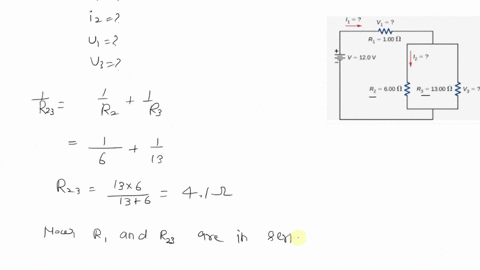 i2 = ?
U1 = ?
U3 = ?
1/R23 = 1/R2 + 1/R3
= 1/6 + 1/13
R23 = 13×6/13+6 = 4.1Ω
R1 and R23 are in seri
I1 = ?
V1 = ?
R1 = 1.00 Ω
I2 = ?
V = 12.0 V
R2 = 6.00 Ω
R3 = 13.00 Ω
V3 = ?